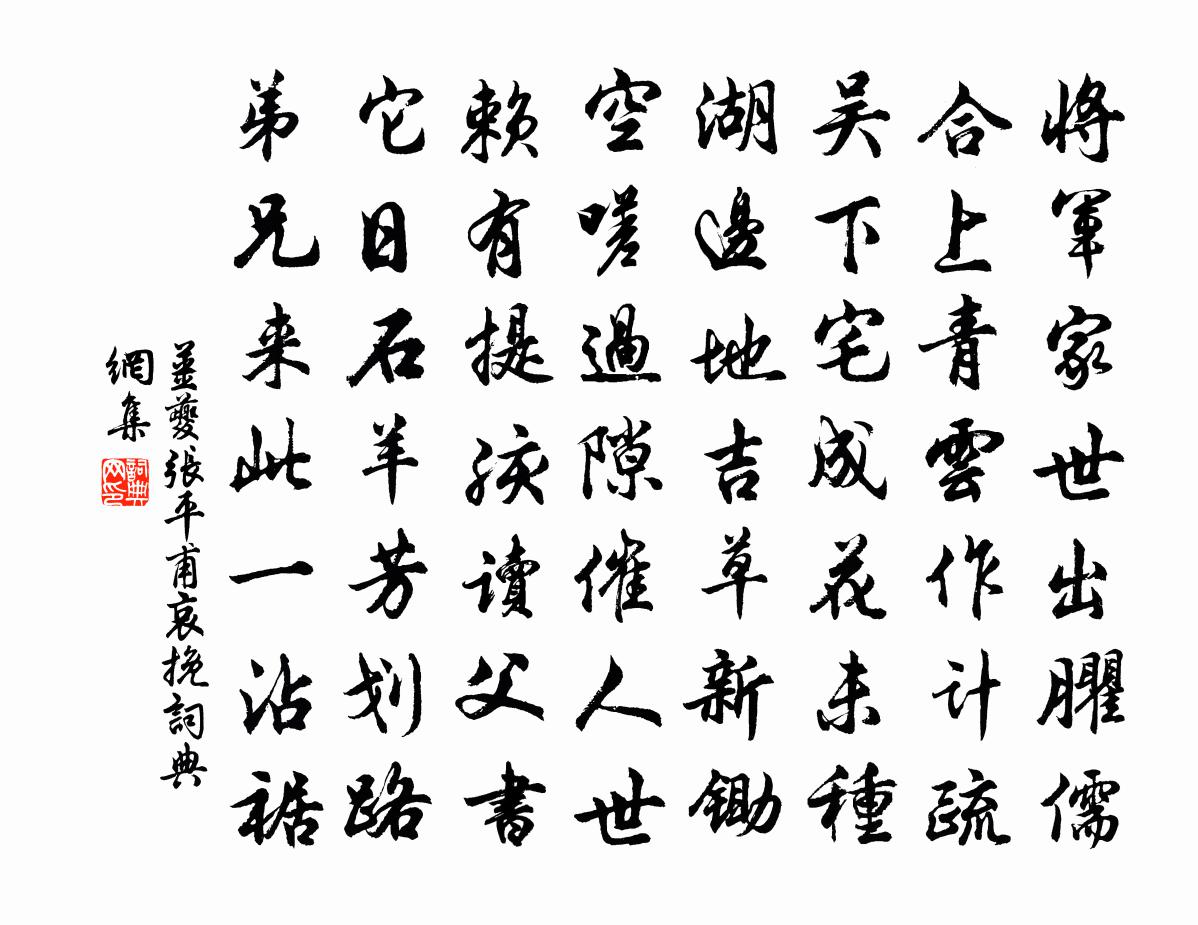 將軍家世出臞儒
合上青雲作计疏
吴下宅成花未種
湖邊地吉草新鋤
空嗟過隙催人世
賴有提孩讀父書
它日石羊芳划路
弟兄来此一沾裾
姜夔张平甫哀挽詞典
網集
詞典网印